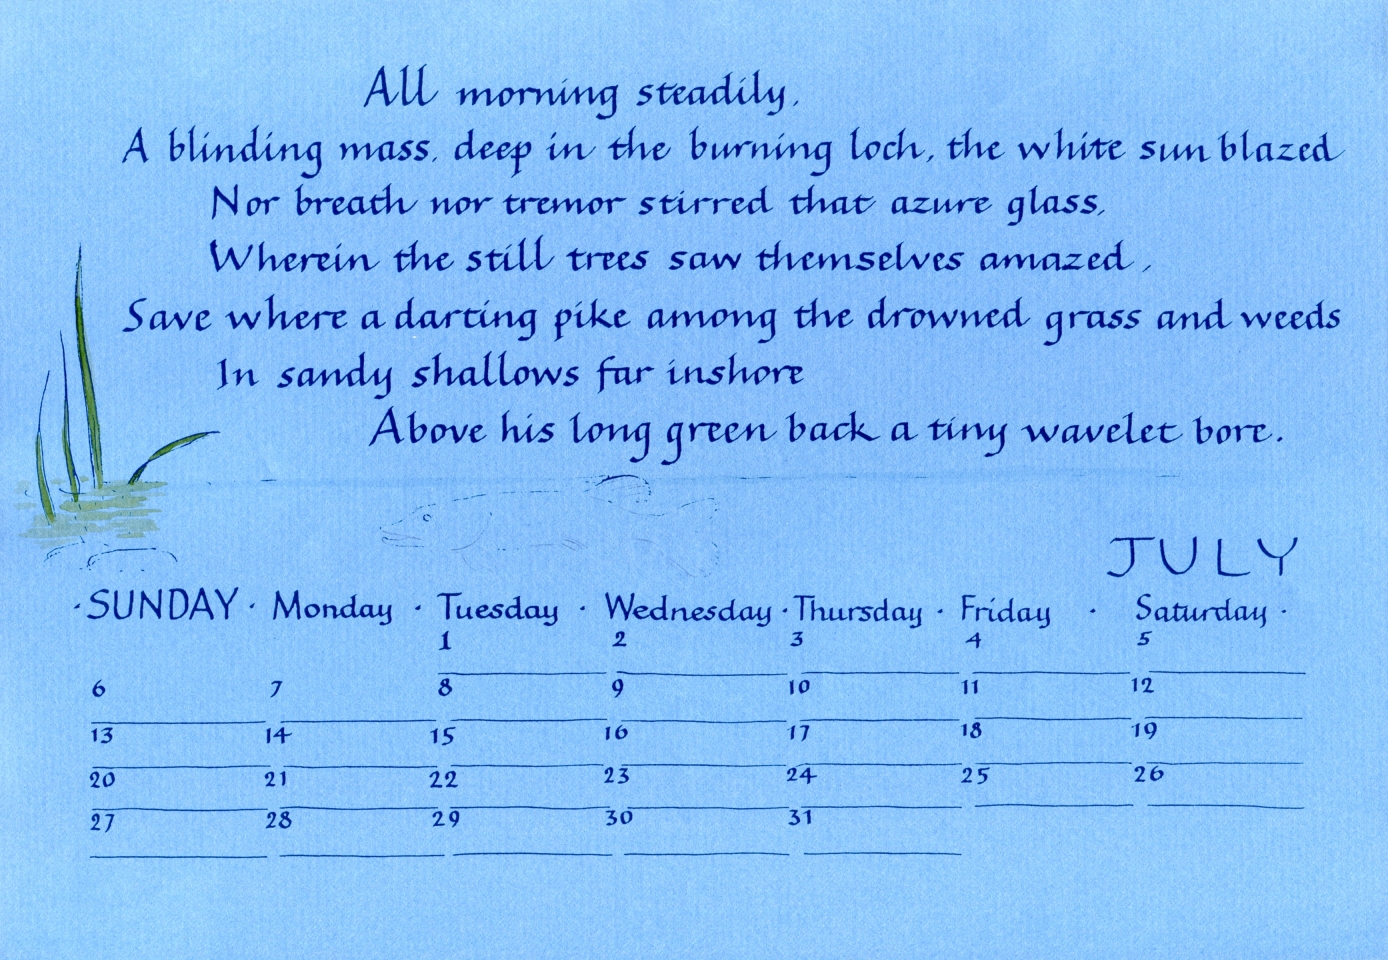 All morning steadily,
A blinding mass, deep in the burning loch, the white sun blazed
Nor breath nor tremor stirred that azure glass,
Wherein the still trees saw themselves amazed,
Save where a darting pike among the drowned grass and weeds
In sandy shallows far inshore
Above his long green back a tiny wavelet bore.
JULY
·SUNDAY· Monday · Tuesday · Wednesday · Thursday · Friday · Saturday ·
1 2 3 4 5
6 7 8 9 10 11 12
13 14 15 16 17 18 19
20 21 22 23 24 25 26
27 28 29 30 31